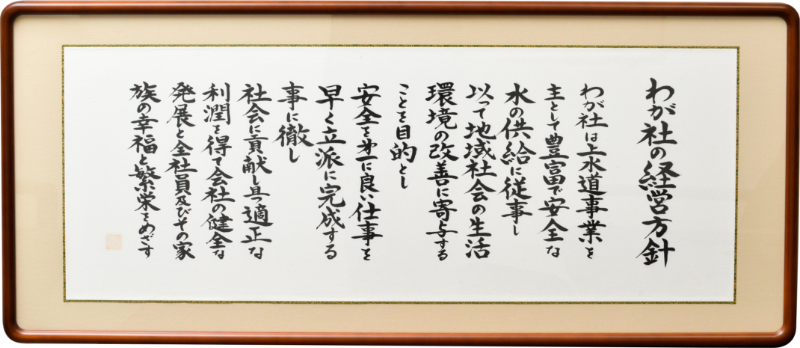 わが社の経営方針
わが社は上水道事業を
主として豊富で安全な
水の供給に従事し
以って地域社会の生活
環境の改善に寄与する
ことを目的とし
安全を第一に良い仕事を
早く立派に完成する
事に徹し
社会に貢献し且つ適正な
利潤を得て会社の健全な
発展と全社員及びその家
族の幸福と繁栄をめざす